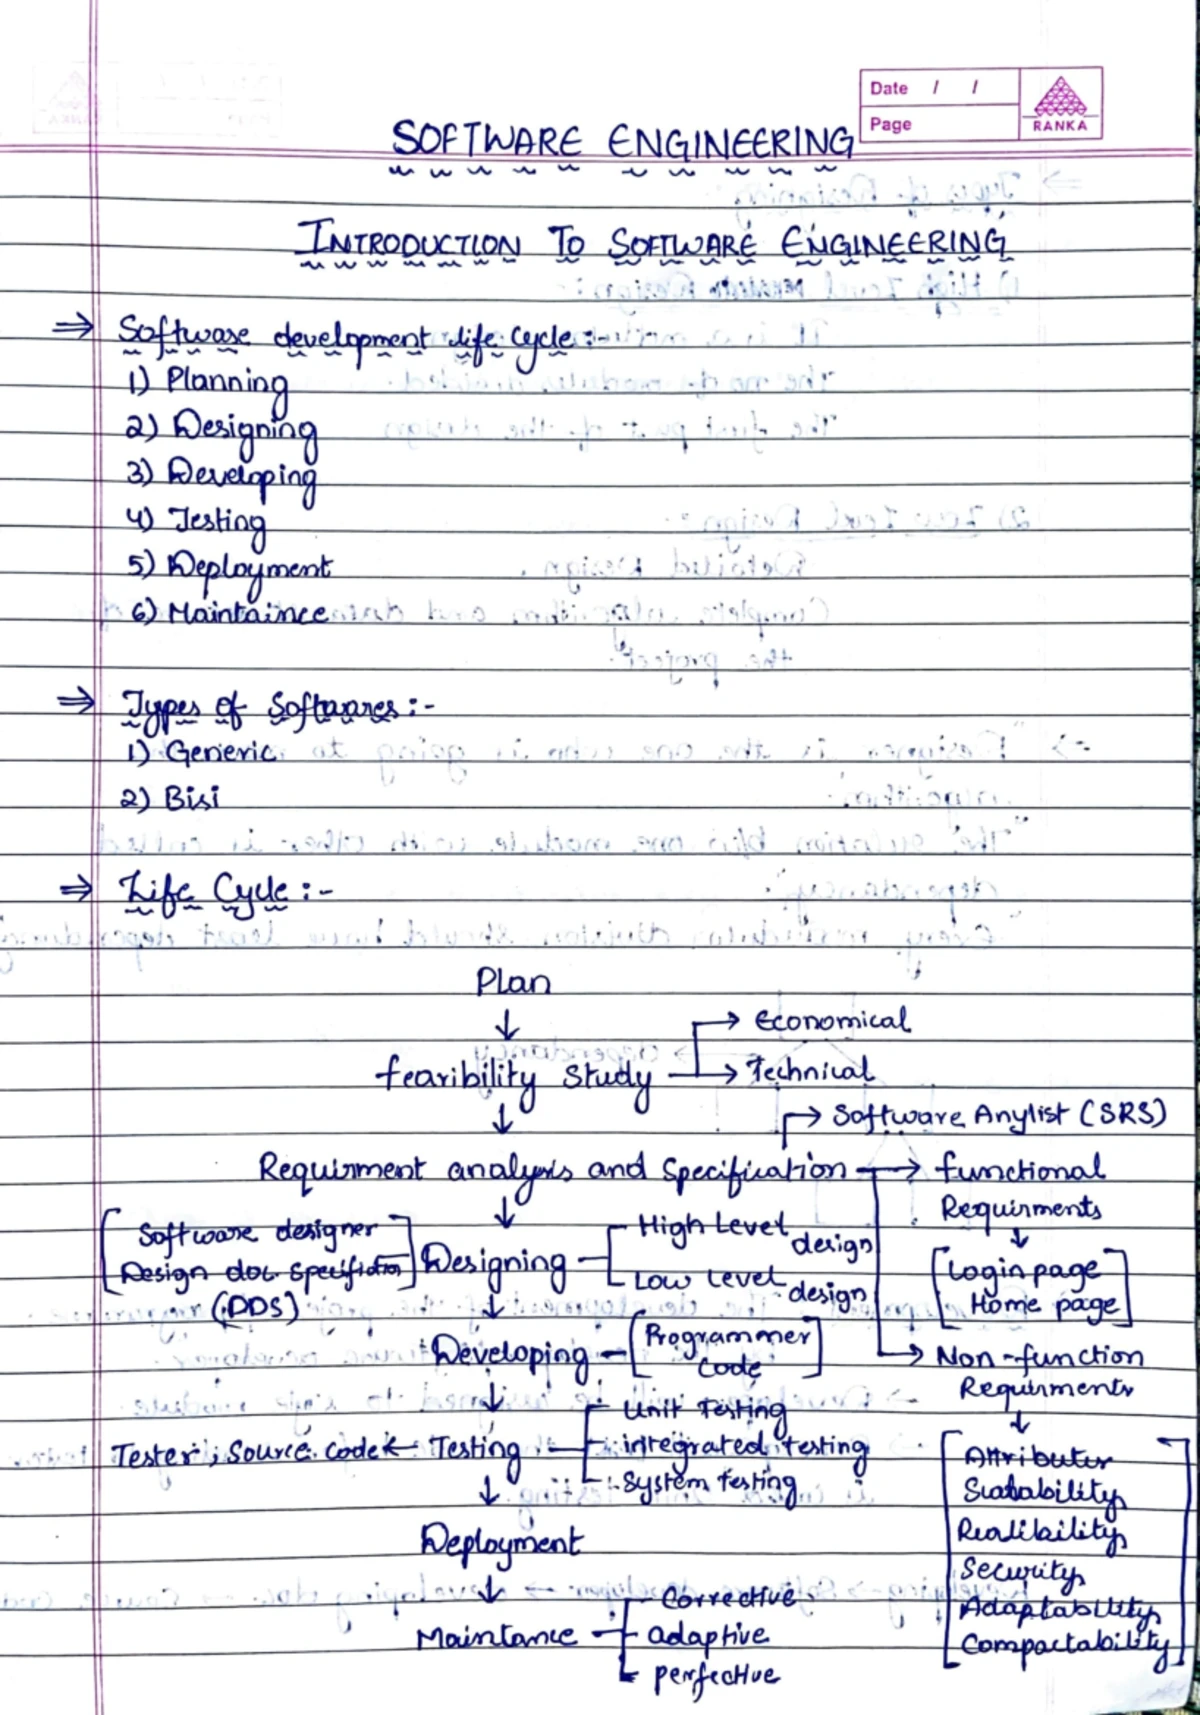 Date / /
Page
RANKA
SOFTWARE ENGINEERING
INTRODUCTION TO SOFTWARE ENGINEERING
⇒ Software development life Cycle :-
1) Planning
2) Designing
3) Developing
4) Testing
5) Deployment
6) Maintaince
⇒ Types of Softwares :-
1) Generic
2) Bisi
⇒ Life Cycle :-
Plan
↓
→ Economical
fearibility Study → Technical
↓
→ Software Anylist (SRS)
Requirment analysis and Specification → functional
Requirments
↓
[Login page
Home page]
↓
[Software designer
Design doc. specifiction]
(DDS)
Designing
High Level design
Low Level design
↓
Developing - [Programmer
Code]
→ Non-function
Requirments
↓
↓
Tester, Source code ← Testing
Unit Testing
integrated testing
System testing
[Attributes
Scalability
Realibility
Security
Adaptability
Compactability]
↓
Deployment
↓
Maintance
Corrective
adaptive
perfective